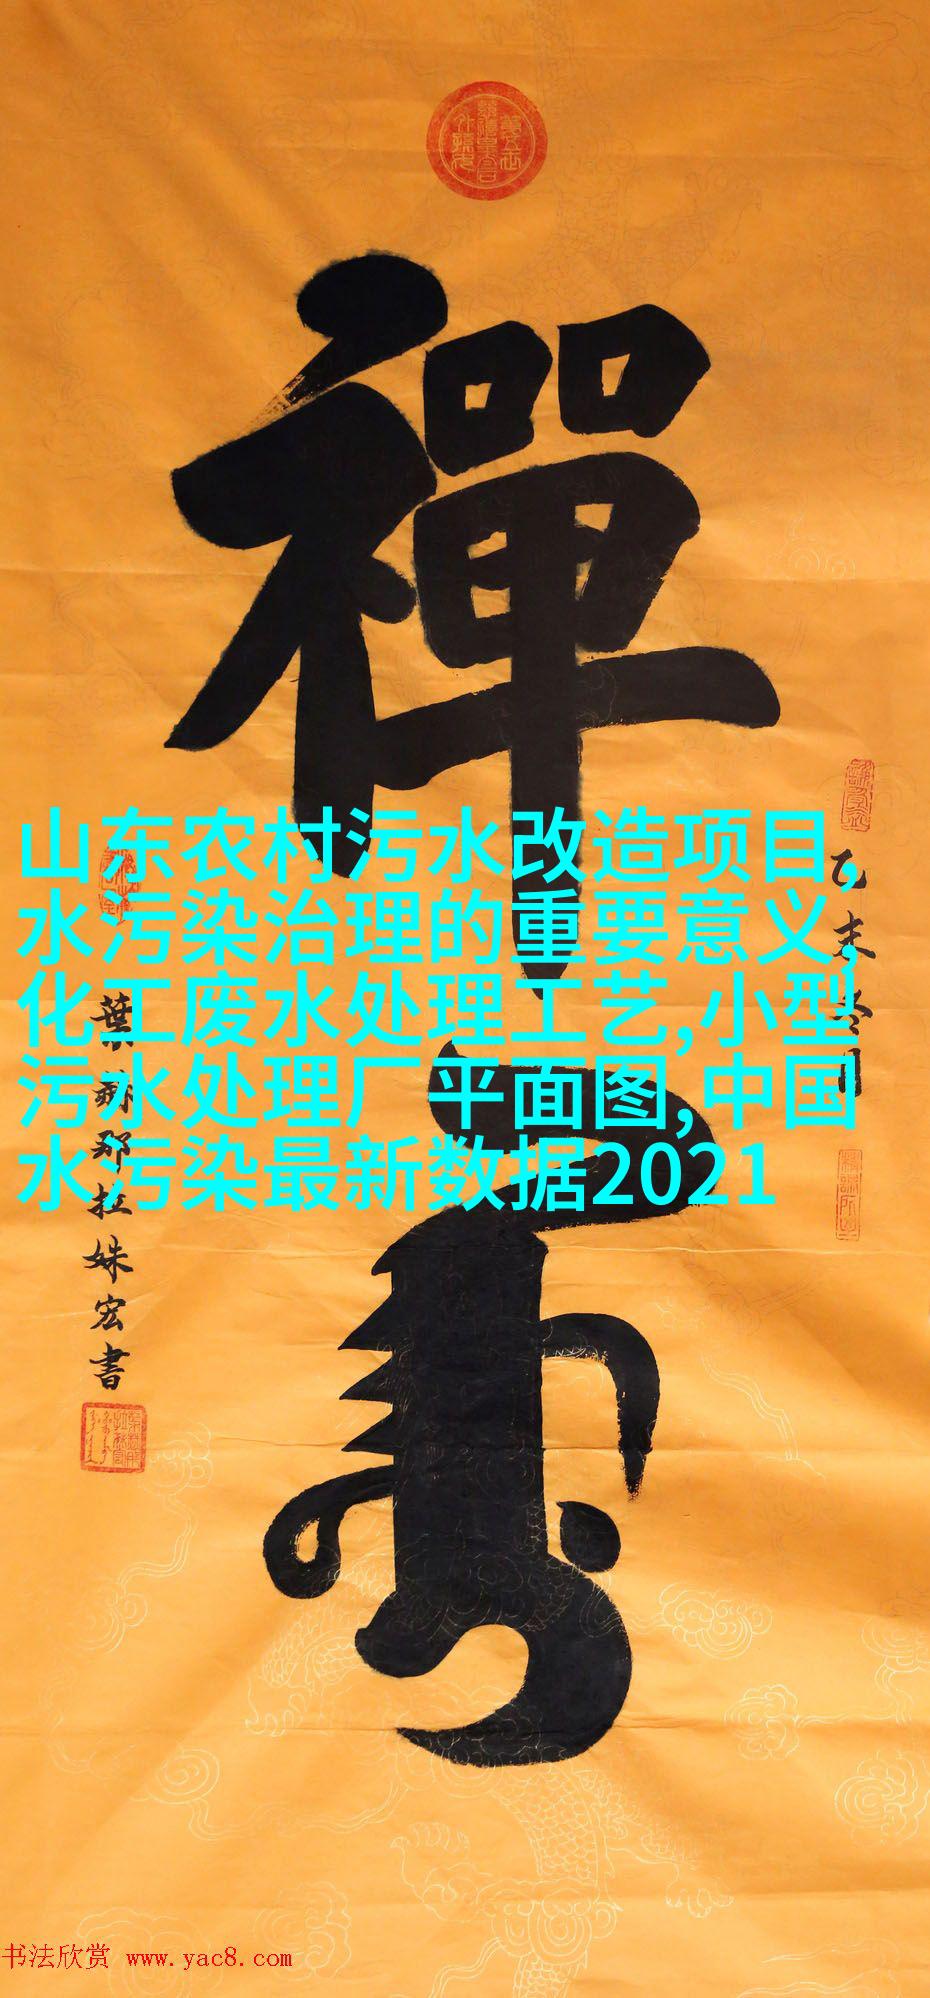 禪
乙未冬月
葉赫那拉姝宏書
山东农村污水改造项目,
水污染治理的重要意义,
化工废水处理工艺,小型
污水处理厂平面图,中国
水污染最新数据2021
书法欣赏 www.yac8.com